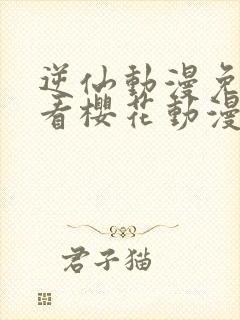 逆仙動漫免
看櫻花動漫
君子猫